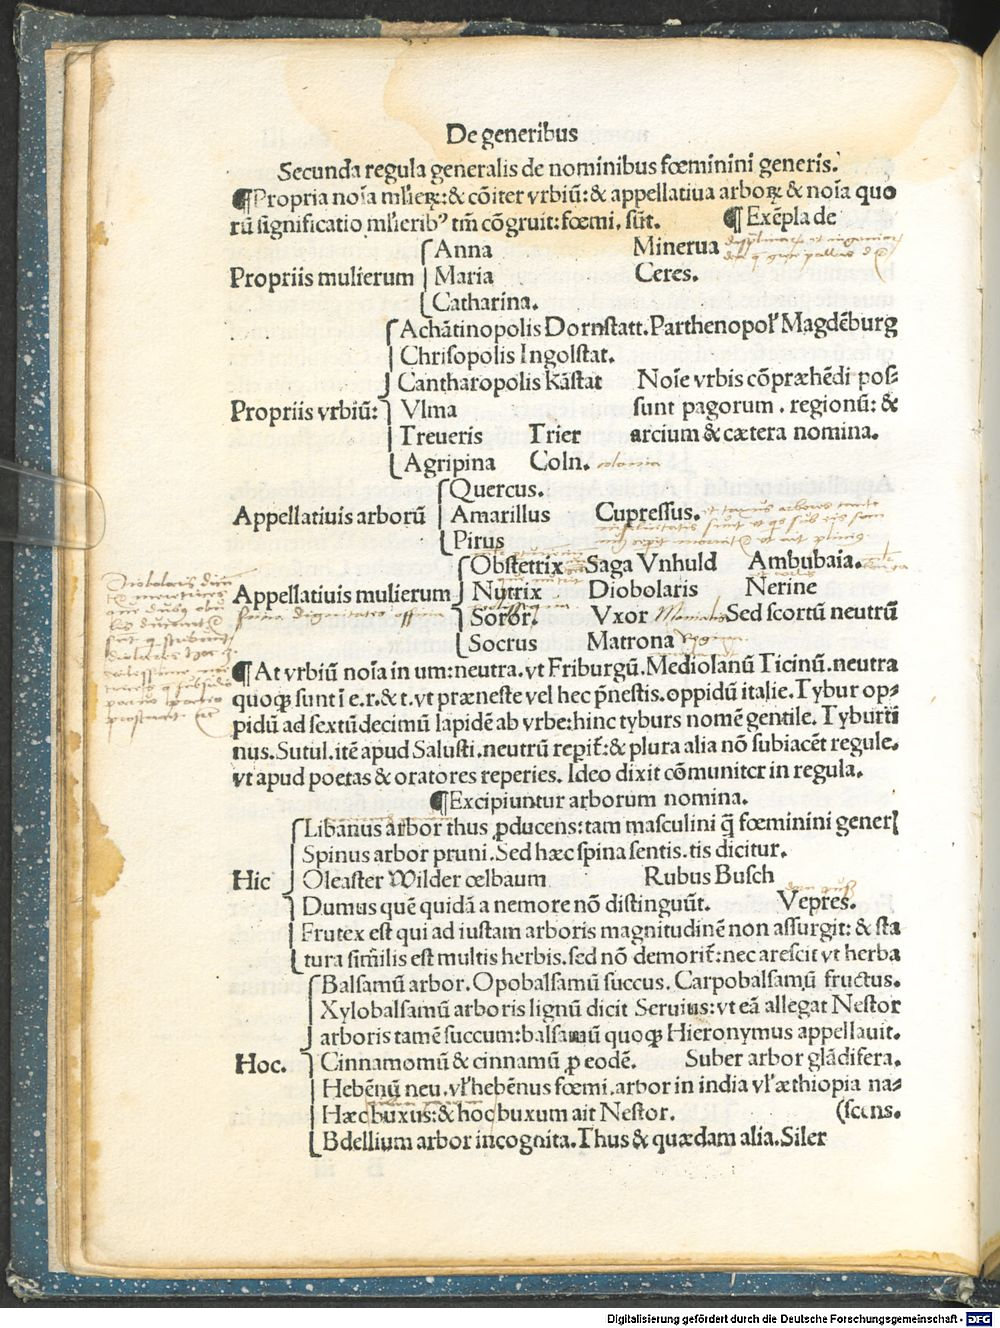 De generibus
Secunda regula generalis de nominibus fœminini generis.
¶Propria noīa ml'ieꝝ:& cōiter vrbiū:& appellatiua arboꝝ & noīa quo
rū significatio ml'ierib⁹ tm̄ cōgruit:fœmi. sūt. ¶ Exēpla de
Anna Minerua
Propriis mulierum Maria Ceres.
Catharina.
Achātinopolis Dornstatt. Parthenopol' Magdēburg
Chrisopolis Ingolstat.
Cantharopolis Kāstat Noīe vrbis cōpræhēdi pos-
Propriis vrbiū: Vlma sunt pagorum. regionū: &
Treueris Trier arcium & cætera nomina.
Agripina Coln. colonia
Quercus.
Appellatiuis arborū Amarillus Cupressus.
Pirus
Obstetrix Saga Vnhuld Ambubaia.
Appellatiuis mulierum Nutrix Diobolaris Nerine
Soror. Vxor Sed scortū neutrū
Socrus Matrona
¶ At vrbiū noīa in um:neutra. vt Friburgū. Mediolanū Ticinū. neutra
quoqꝫ sunt ī e.r.& t. vt præneste vel hec p̄nestis. oppidū italie. Tybur op-
pidū ad sextūdecimū lapidē ab vrbe:hinc tyburs nomē gentile. Tyburti
nus. Sutul. itē apud Salusti. neutrū reperit̄:& plura alia nō subiacēt regule.
vt apud poetas & oratores reperies. Ideo dixit cōmuniter in regula.
¶Excipiuntur arborum nomina.
Libanus arbor thus ꝓducens:tam masculini q̄ fœminini generl
Spinus arbor pruni. Sed hæc spina sentis.tis dicitur.
Hic Oleaster Wilder œlbaum Rubus Busch
Dumus quē quidā a nemore nō distinguūt. Vepres.
Frutex est qui ad iustam arboris magnitudinē non assurgit: & sta
tura similis est multis herbis. sed nō demorit̄:nec arescit vt herba
Balsamū arbor. Opobalsamū succus. Carpobalsamū fructus.
Xylobalsamū arboris lignū dicit Seruius: vt eā allegat Nestor
arboris tamē succum:balsamū quoqꝫ Hieronymus appellauit.
Hoc. Cinnamomū & cinnamū ꝓ eodē. Suber arbor glādifera.
Hebēnū neu. vl' hebēnus fœmi. arbor in india vl' æthiopia na-
Hæc buxus:& hoc buxum ait Nestor. (scens.
Bdellium arbor incognita. Thus & quædam alia. Siler
Digitalisierung gefördert durch die Deutsche Forschungsgemeinschaft - DFG